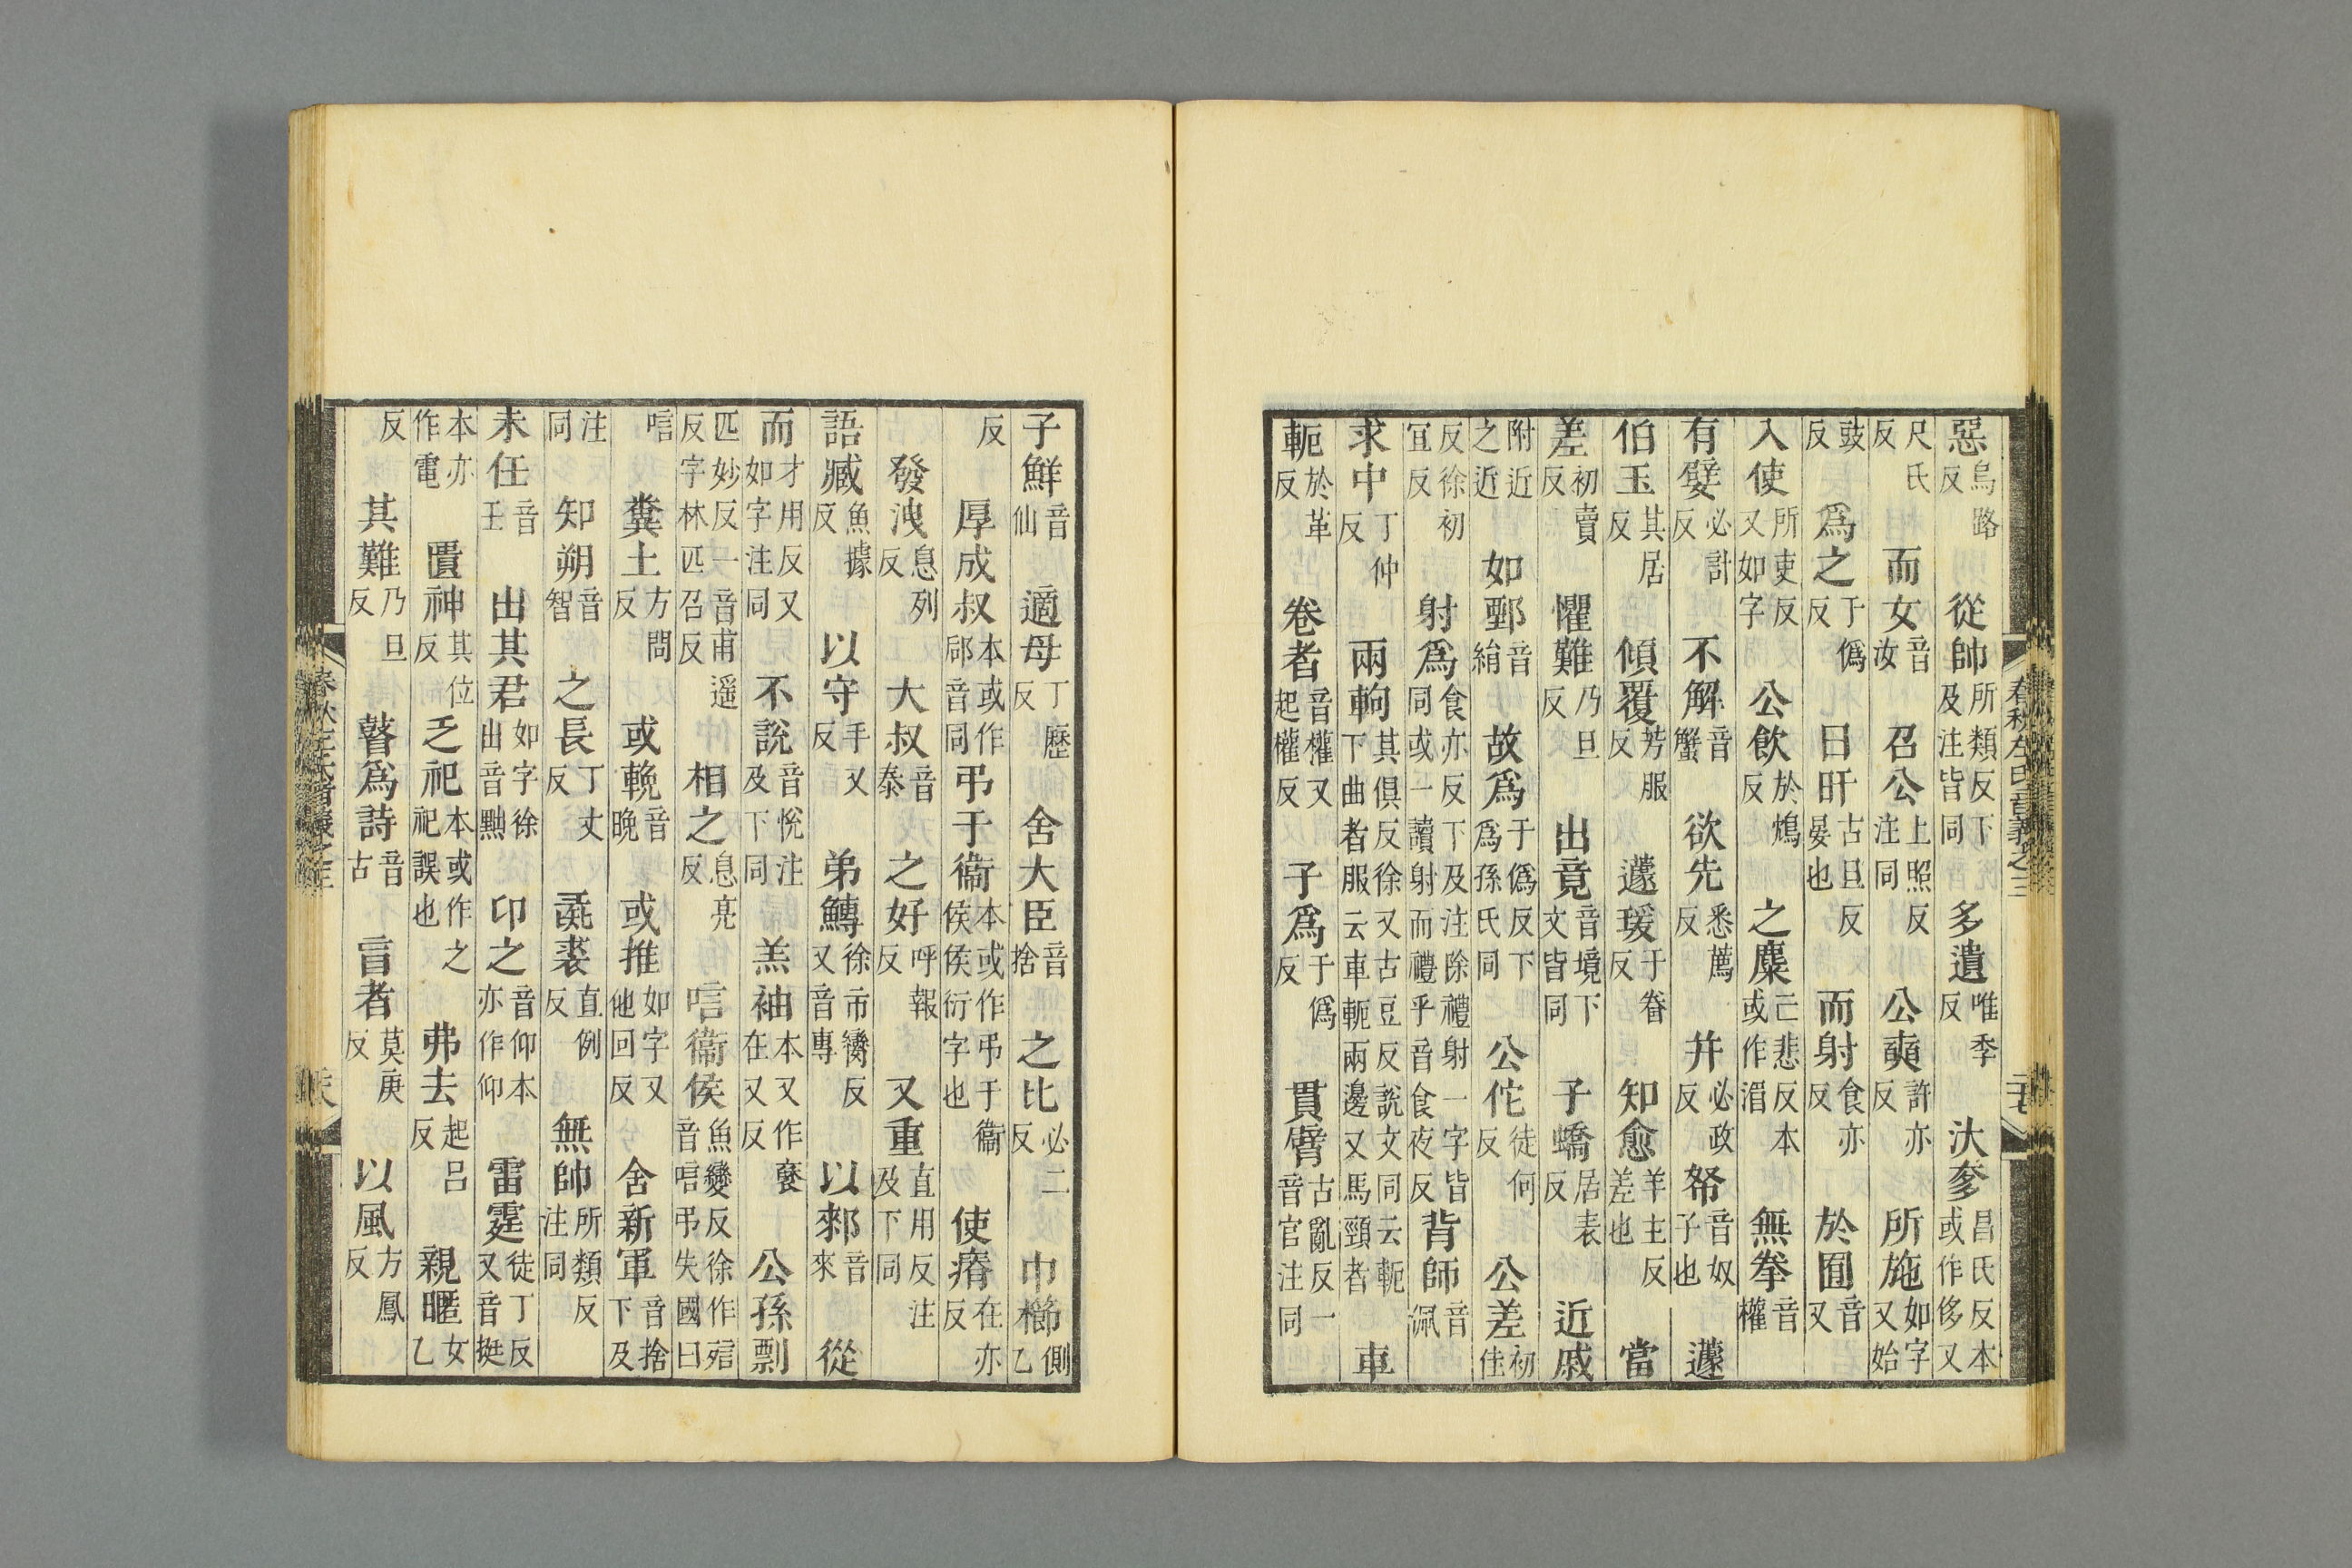 惡烏路反 從帥所類反下及注皆同 多遺唯季反 汏奓昌氏反本或作侈又
尺氏反 而女音汝 召公上照反注同 公奭許亦反 所施如字又始
豉反 爲之于僞反 日旰古旦反晏也 而射食亦反 於囿音又
入使所吏反又如字 公飲於鴆反 之麋亡悲反本或作湄 無拳音權
有嬖必計反 不解音蟹 欲先悉薦反 幷必政反 帑音奴子也 蘧
伯玉其居反 傾覆芳服反 蘧瑗于眷反 知愈羊主反差也 當
差初賣反 懼難乃旦反 出竟音境下文皆同 子蟜居表反 近戚
附近之近 如鄄音絹 故爲于僞反下爲孫氏同 公佗徒何反 公差初佳
反徐初宜反 射爲食亦反下及注除禮射一字皆同或一讀射而禮乎音食夜反 背師音佩
求中丁仲反 兩軥其俱反徐又古豆反說文同云軛下曲者服云車軛兩邊叉馬頸者 車
軛於革反 卷者音權又起權反 子爲于僞反 貫臂古亂反一音官注同
春秋左氏音義之三
子鮮音仙 適母丁歷反 舍大臣音捨 之比必二反 巾櫛側乙
反 厚成叔本或作郈音同 弔于衞本或作弔于衞侯侯衍字也 使瘠在亦反
發洩息列反 大叔音泰 之好呼報反 又重直用反注及下同
語臧魚據反 以守手又反 弟鱄徐市臠反又音專 以郲音來 從
而才用反又如字注同 不說音悅注及下同 羔袖本又作褎在又反 公孫剽
匹妙反一音甫遥反字林匹召反 相之息亮反 唁衞侯魚變反徐作殗音唁弔失國曰
唁 糞土方問反 或輓音晚 或推如字又他回反 舍新軍音捨下及
注同 知朔音智 之長丁丈反 彘裘直例反 無帥所類反注同
未任音壬 出其君如字徐出音黜 卬之音仰本亦作仰 雷霆徒丁反又音挺
本亦作電 匱神其位反 乏祀本或作之祀誤也 弗去起呂反 親暱女乙
反 其難乃旦反 瞽爲詩音古 盲者莫庚反 以風方鳳反